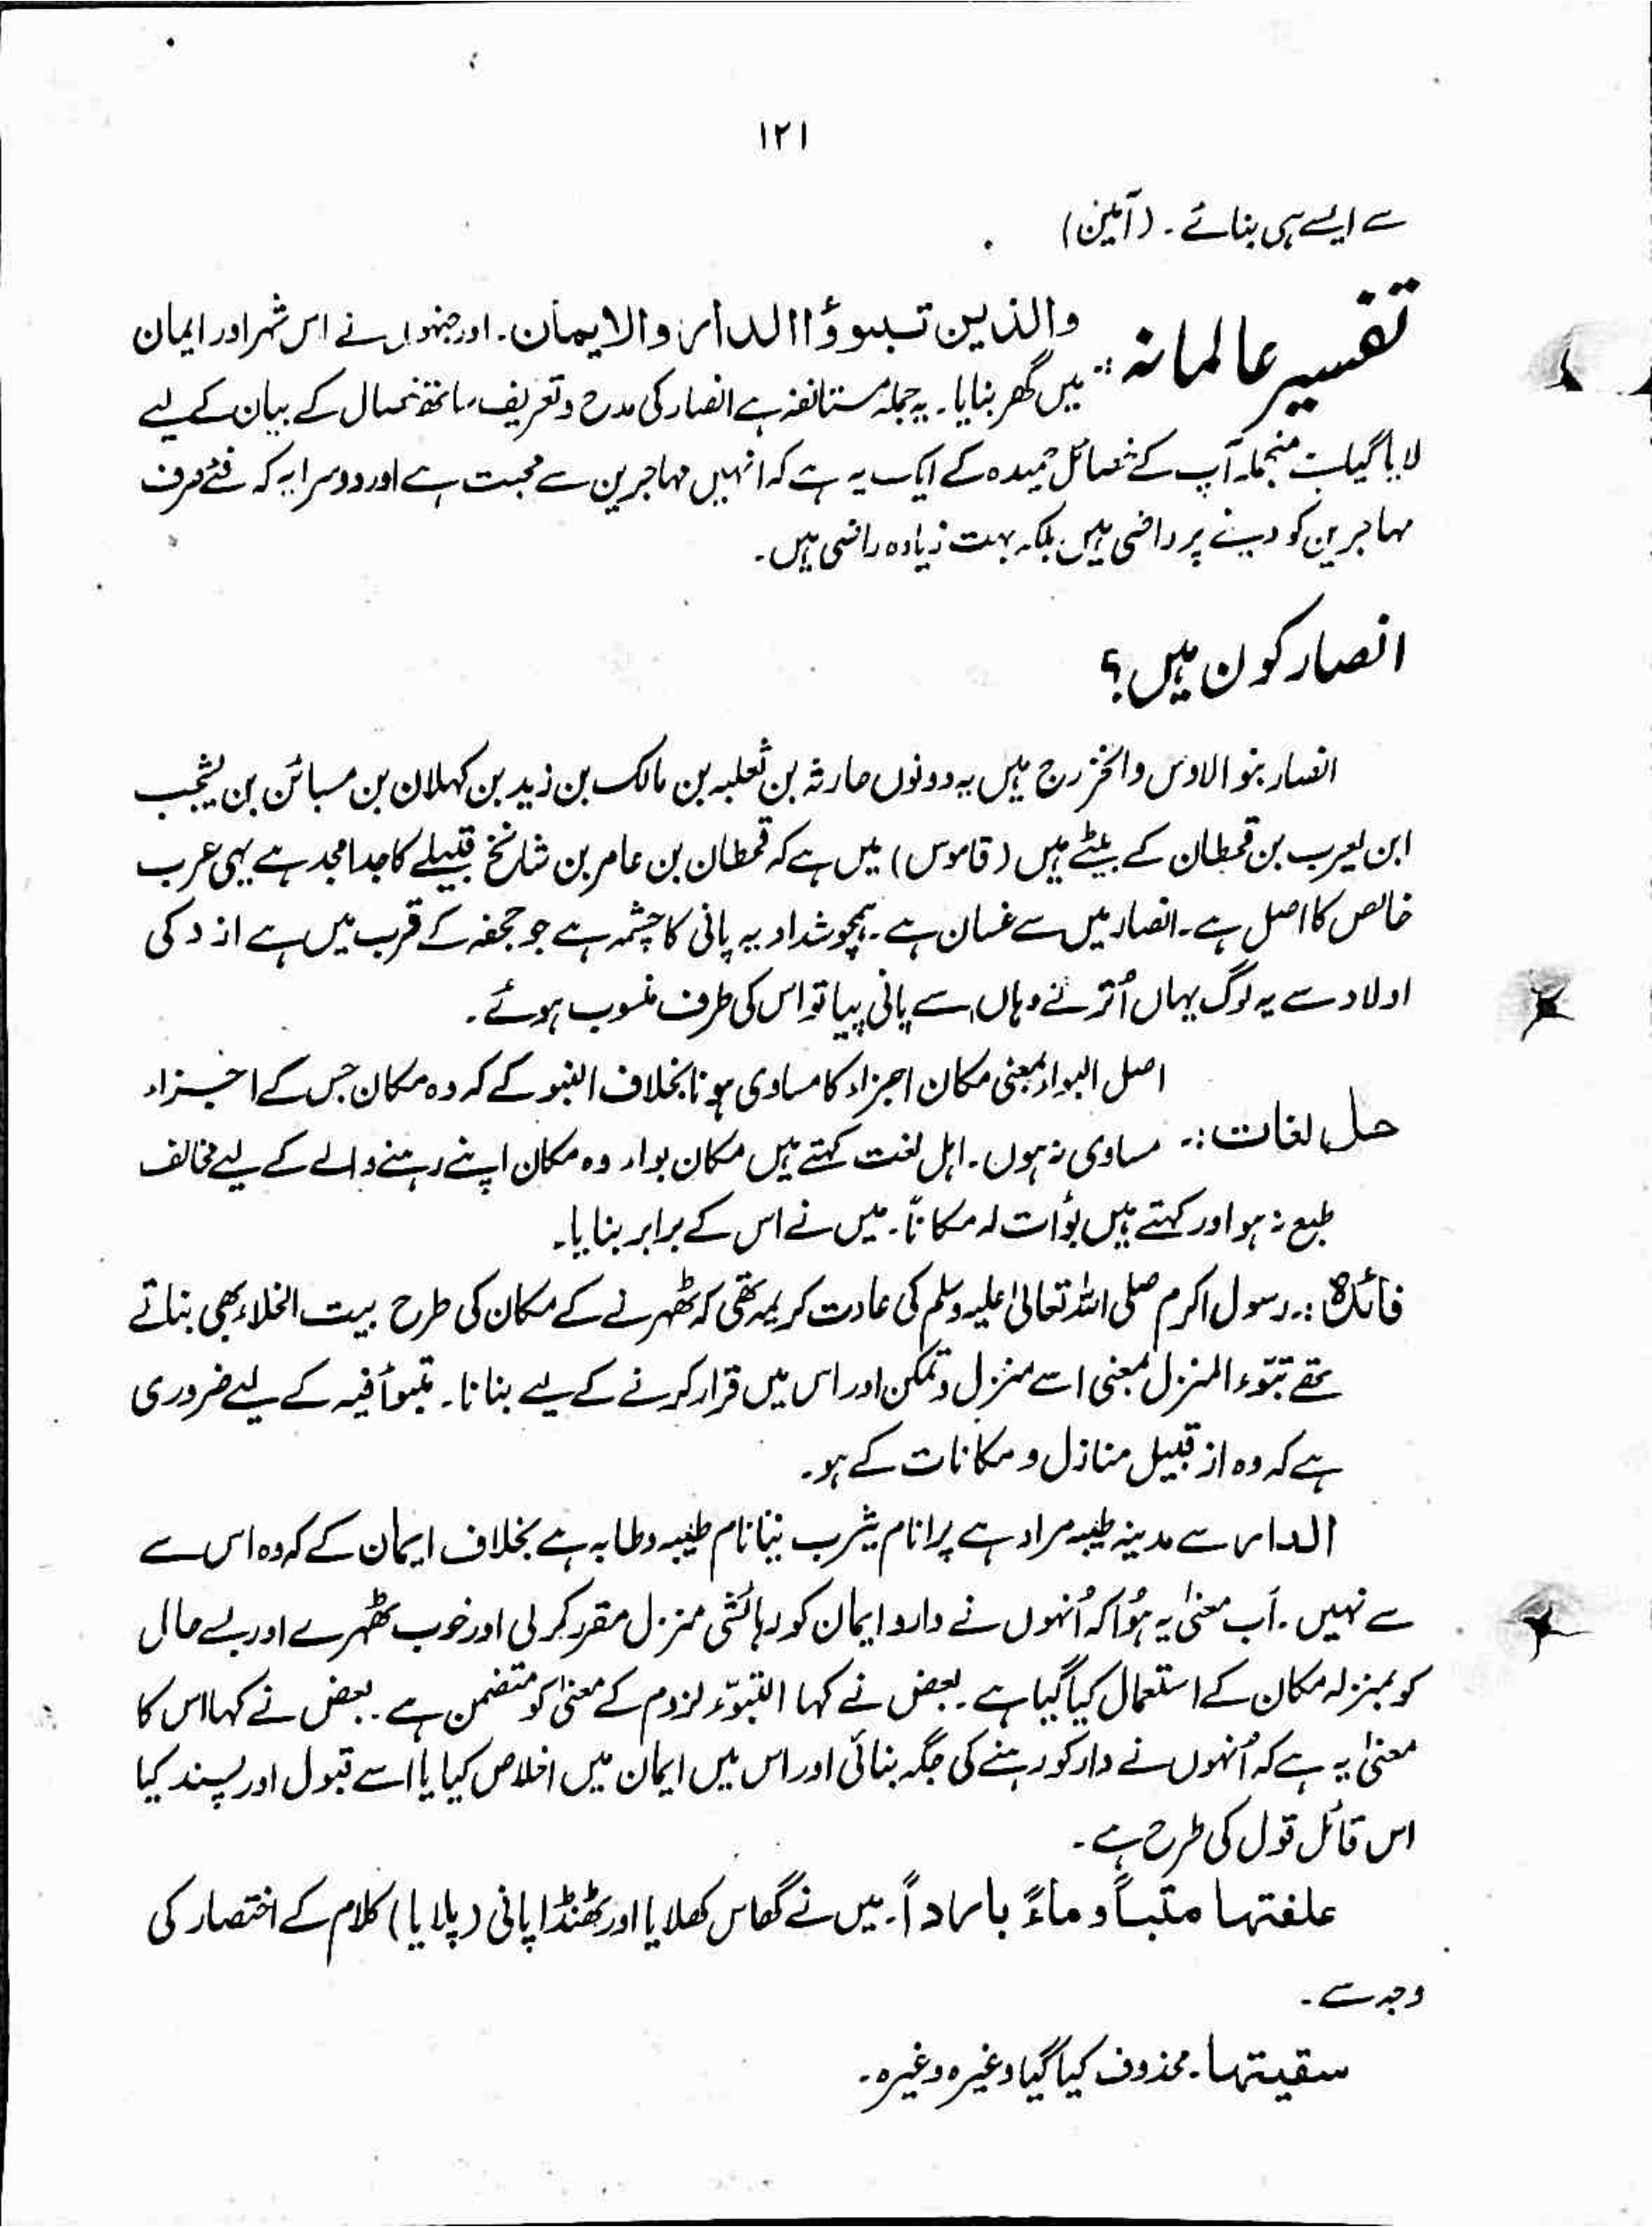 ۱۲۱
سے ایسے ہی بنائے۔ (آمین)
تفسیر عالمانہ :: والذین تبوؤا الدار والایمان۔ اور جنہوں نے اس شہر اور ایمان
میں گھر بنایا۔ یہ جملہ مستانفہ ہے انصار کی مدح و تعریف ساتھ خصال کے بیان کے لیے
لایا گیا ہے منجملہ آپ کے خصائل حمیدہ کے ایک یہ ہے کہ انہیں مہاجرین سے محبت ہے اور دوسرا یہ کہ فئے صرف
مہاجرین کو دینے پر راضی ہیں بلکہ بہت زیادہ راضی ہیں۔
انصار کون ہیں؟
انصار بنو الاوس والخزرج ہیں یہ دونوں حارثہ بن ثعلبہ بن مالک بن زید بن کہلان بن سبائن بن یشجب
ابن یعرب بن قحطان کے بیٹے ہیں (قاموس) میں ہے کہ قحطان بن عامر بن شالخ قبیلے کا جد امجد ہے یہی عرب
خالص کا اصل ہے۔ انصار میں سے غسان ہے۔ ہمچو شداد یہ پانی کا چشمہ ہے جو جحفہ کے قرب میں ہے ازد کی
اولاد سے یہ لوگ یہاں اُترنے وہاں سے پانی پیا تو اس کی طرف منسوب ہوئے۔
حل لغات :۔ اصل البواء بمعنی مکان اجزاء کا مساوی ہونا بخلاف النبو کے کہ وہ مکان جس کے اجزاء
مساوی نہ ہوں۔ اہل لغت کہتے ہیں مکان بواء وہ مکان اپنے رہنے والے کے لیے مخالف
طبع نہ ہو اور کہتے ہیں بوأت لہ مکاناً۔ میں نے اس کے برابر بنایا۔
فائدہ :۔ رسول اکرم صلی اللہ تعالیٰ علیہ وسلم کی عادت کریمہ تھی کہ ٹھہرنے کے مکان کی طرح بیت الخلاء بھی بناتے
تھے تبوّء المنزل بمعنی اسے منزل و تمکن اور اس میں قرار کرنے کے لیے بنانا۔ متبوأفیہ کے لیے ضروری
ہے کہ وہ از قبیل منازل و مکانات کے ہو۔
الدار سے مدینہ طیبہ مراد ہے پرانا نام یثرب نیا نام طیبہ وطابہ ہے بخلاف ایمان کے کہ وہ اس سے
سے نہیں۔ اَب معنیٰ یہ ہُوا کہ اُنہوں نے دار و ایمان کو رہائشی منزل مقرر کر لی اور خوب ٹھہرے اور بے حال
کو بمنزلہ مکان کے استعمال کیا گیا ہے۔ بعض نے کہا التبوّء لزوم کے معنیٰ کو متضمن ہے۔ بعض نے کہا اس کا
معنیٰ یہ ہے کہ اُنہوں نے دار کو رہنے کی جگہ بنائی اور اس میں ایمان میں اخلاص کیا یا اسے قبول اور پسند کیا
اس قائل قول کی طرح ہے۔
علفتہا متبناً وماءً بارداً۔ میں نے گھاس کھلایا اور ٹھنڈا پانی (پلایا) کلام کے اختصار کی
وجہ سے۔
سقیتہا۔ محذوف کیا گیا وغیرہ وغیرہ۔